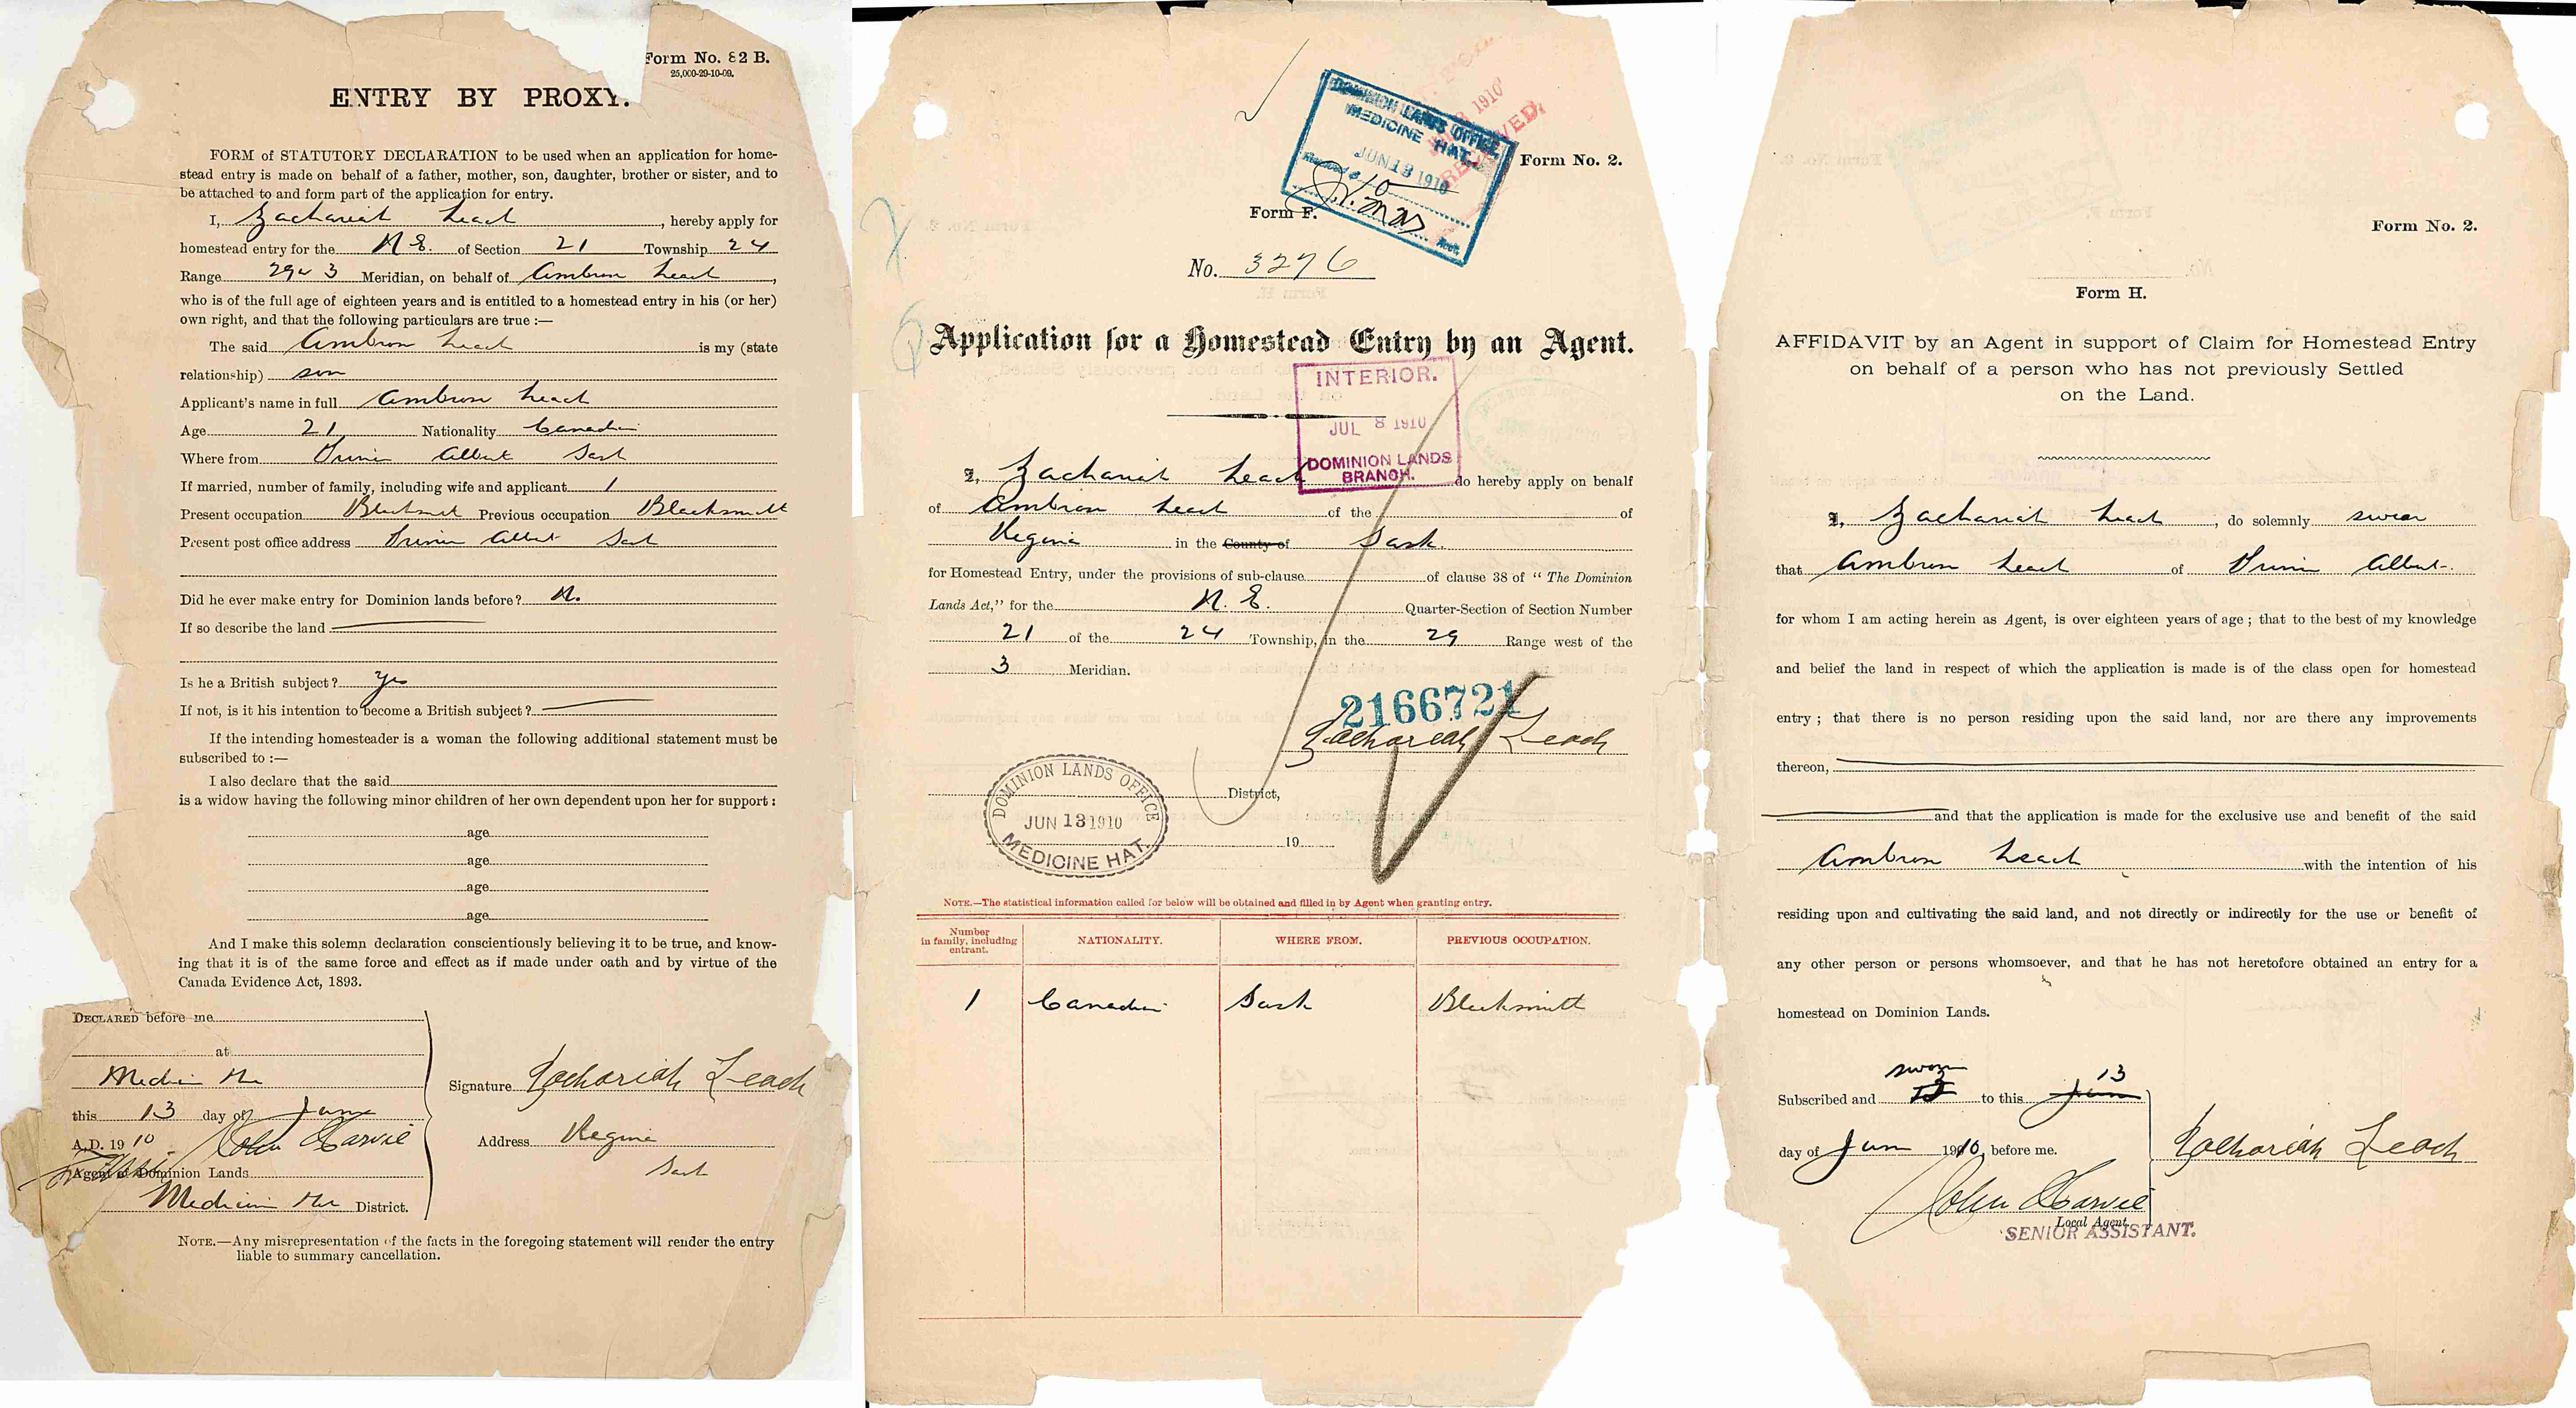 Form No. 82 B.
25,000-29-10-09.
ENTRY BY PROXY.
FORM of STATUTORY DECLARATION to be used when an application for home-
stead entry is made on behalf of a father, mother, son, daughter, brother or sister, and to
be attached to and form part of the application for entry.
I, Zachariah Leach, hereby apply for
homestead entry for the N.E. of Section 21 Township 24
Range 29 w 3 Meridian, on behalf of Ambrose Leach,
who is of the full age of eighteen years and is entitled to a homestead entry in his (or her)
own right, and that the following particulars are true :—
The said Ambrose Leach is my (state
relationship) son
Applicant's name in full Ambrose Leach
Age 21 Nationality Canadian
Where from Prince Albert Sask
If married, number of family, including wife and applicant 1
Present occupation Blacksmith Previous occupation Blacksmith
Present post office address Prince Albert Sask
Did he ever make entry for Dominion lands before? No
If so describe the land
Is he a British subject? Yes
If not, is it his intention to become a British subject?
If the intending homesteader is a woman the following additional statement must be
subscribed to :—
I also declare that the said
is a widow having the following minor children of her own dependent upon her for support :
age
age
age
age
And I make this solemn declaration conscientiously believing it to be true, and know-
ing that it is of the same force and effect as if made under oath and by virtue of the
Canada Evidence Act, 1893.
DECLARED before me
at
Medicine Hat
this 13 day of June
A.D. 1910 John Garvie
Agent of Dominion Lands
Medicine Hat District.
Signature Zachariah Leach
Address Regina
Sask
NOTE.—Any misrepresentation of the facts in the foregoing statement will render the entry
liable to summary cancellation.
DOMINION LANDS OFFICE
MEDICINE HAT
JUN 13 1910
1910
RECEIVED
Form No. 2.
Form F.
No. 3276
Application for a Homestead Entry by an Agent.
INTERIOR.
JUL 8 1910
DOMINION LANDS
BRANCH.
I, Zachariah Leach do hereby apply on behalf
of Ambrose Leach of the of
Regina in the County of Sask.
for Homestead Entry, under the provisions of sub-clause of clause 38 of "The Dominion
Lands Act," for the N. E. Quarter-Section of Section Number
21 of the 24 Township, in the 29 Range west of the
3 Meridian.
2166721
Zachariah Leach
District,
19
DOMINION LANDS OFFICE
JUN 13 1910
MEDICINE HAT.
NOTE.—The statistical information called for below will be obtained and filled in by Agent when granting entry.
Number in family, including entrant. NATIONALITY. WHERE FROM. PREVIOUS OCCUPATION.
1 Canadian Sask Blacksmith
Form No. 2.
Form H.
AFFIDAVIT by an Agent in support of Claim for Homestead Entry
on behalf of a person who has not previously Settled
on the Land.
I, Zachariah Leach, do solemnly swear
that Ambrose Leach of Prince Albert
for whom I am acting herein as Agent, is over eighteen years of age ; that to the best of my knowledge
and belief the land in respect of which the application is made is of the class open for homestead
entry ; that there is no person residing upon the said land, nor are there any improvements
thereon,
and that the application is made for the exclusive use and benefit of the said
Ambrose Leach with the intention of his
residing upon and cultivating the said land, and not directly or indirectly for the use or benefit of
any other person or persons whomsoever, and that he has not heretofore obtained an entry for a
homestead on Dominion Lands.
Subscribed and sworn to this 13
day of June 1910, before me.
Zachariah Leach
John Garvie
Local Agent
SENIOR ASSISTANT.